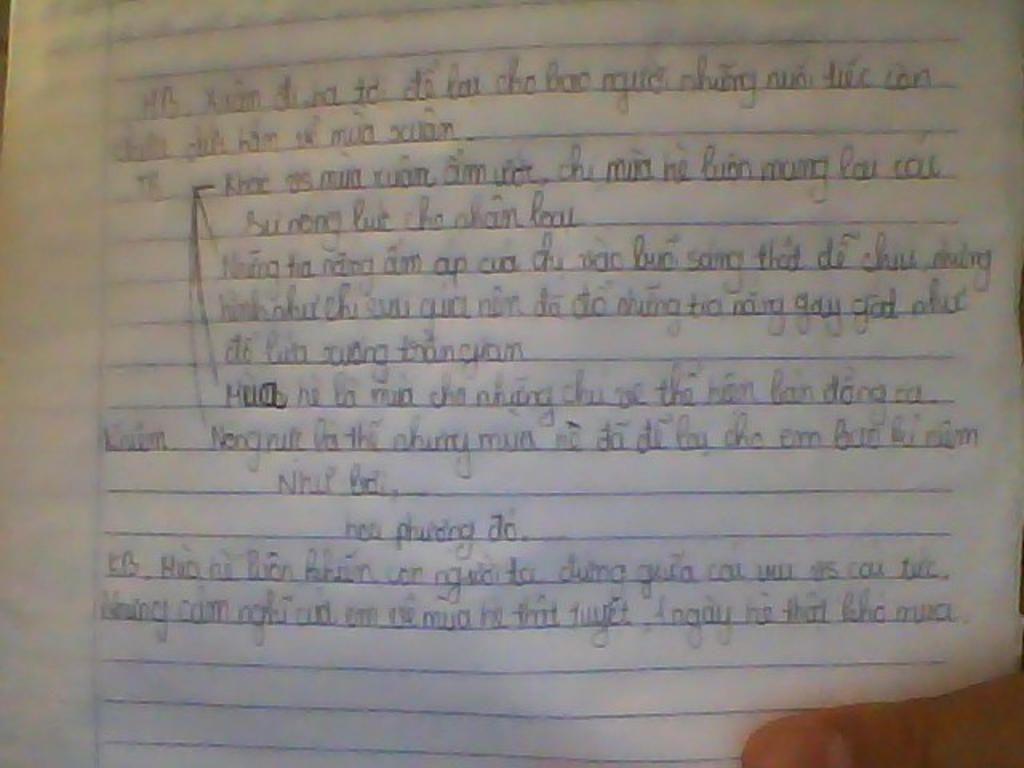 MB. Xuân đi ra để lại cho bao người những nuối tiếc còn
hờn về mùa xuân.
TB Khác vs mùa xuân ẩm ướt, chị mùa hè luôn mang lại cái
sự nóng lực cho nhân loại
Những tia nắng ấm áp của chị vào buổi sáng thật dễ chịu nhưng
hình như chị quá nên đã đổ những tia nắng gay gắt như
đổ lửa xuống trần gian
Mùa hè là mùa cho những chú ve thể hiện bản đồng ca.
K.niệm Nóng nực là thế nhưng mùa hè đã để lại cho em bao kỉ niệm
Như bơi,
hoa phượng đỏ.
KB. Mùa hè luôn khiến con người ta đứng giữa cái vui vs cái tức.
Những cảm nghĩ của em về mùa hè thật tuyệt, 1 ngày hè thật khó